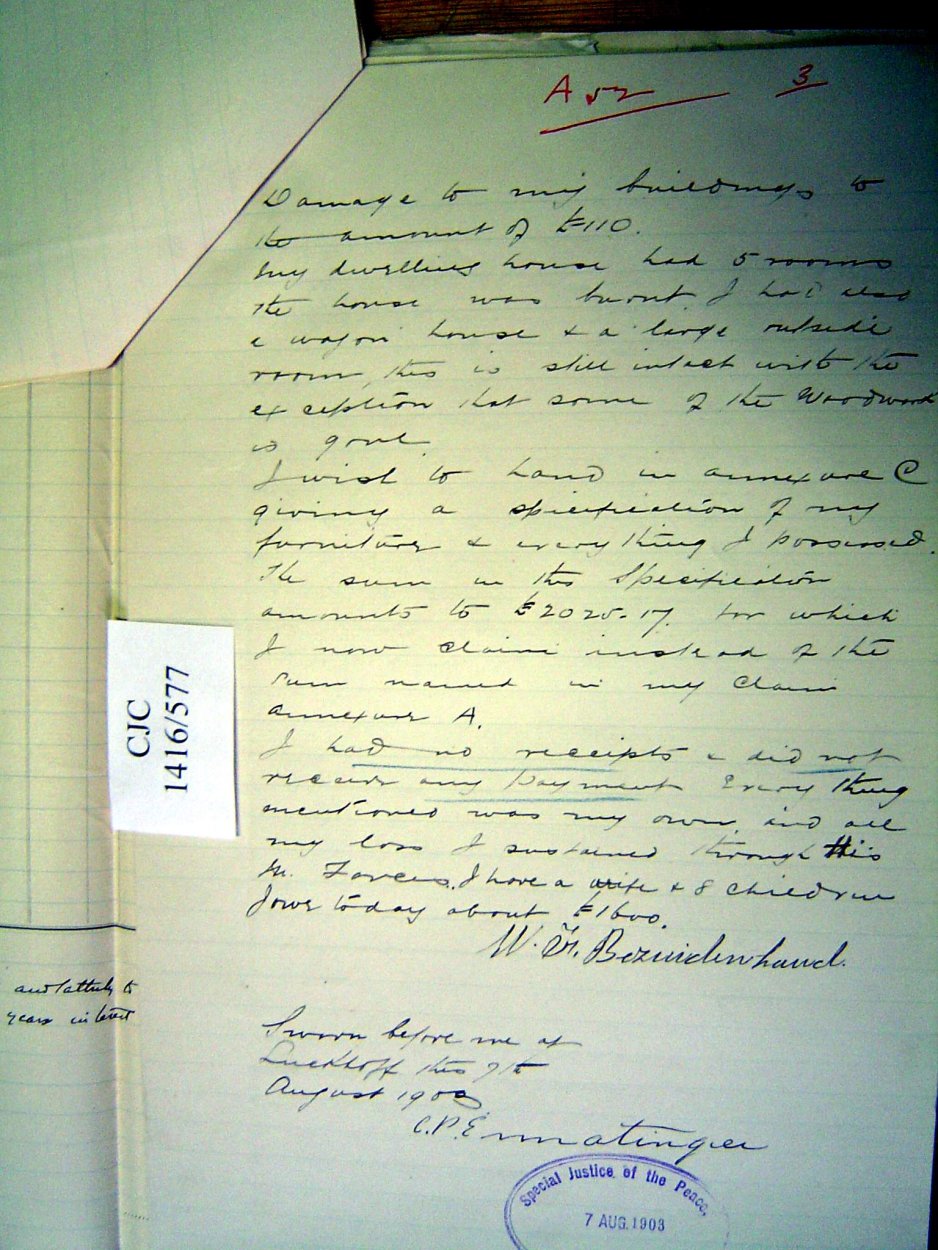 3
Damage to my buildings to
the amount of £110.
My dwelling house had 5 rooms
the house was burnt I had also
a wagon house & a large outside
room, this is still intact with the
exception that some of the Woodwork
is gone
I wish to hand in annexure C
giving a specification of my
furniture & everything I possessed.
The sum in this Specification
amounts to £2025-17 for which
I now claim instead of the
sum named in my Claim
annexure A.
I had no receipts & did not
receive any payment Every thing
mentioned was my own, and all
my loss I sustained through
Forces. I have a wife & 8 children
I owe today about £1600.
W. Bezuidenhoud.
Sworn before me at
Luckhoff this 7th
August 1903
C.P. Ermatinger
Special Justice of the Peace,
7 AUG. 1903
CJC
1416/577
years interest